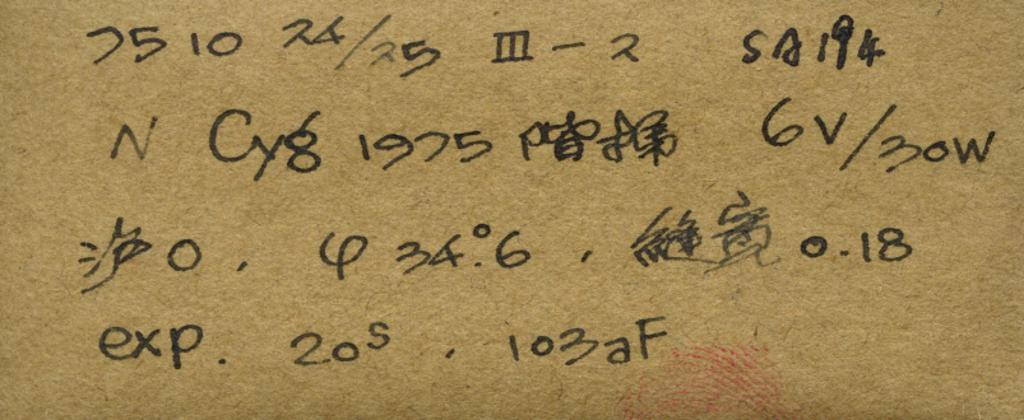 7510 24/25 III-2 SA194
N Cyg 1975 階掃 6V/30W
沪0, φ 34°.6, 縫寬 0.18
exp. 20s, 103aF